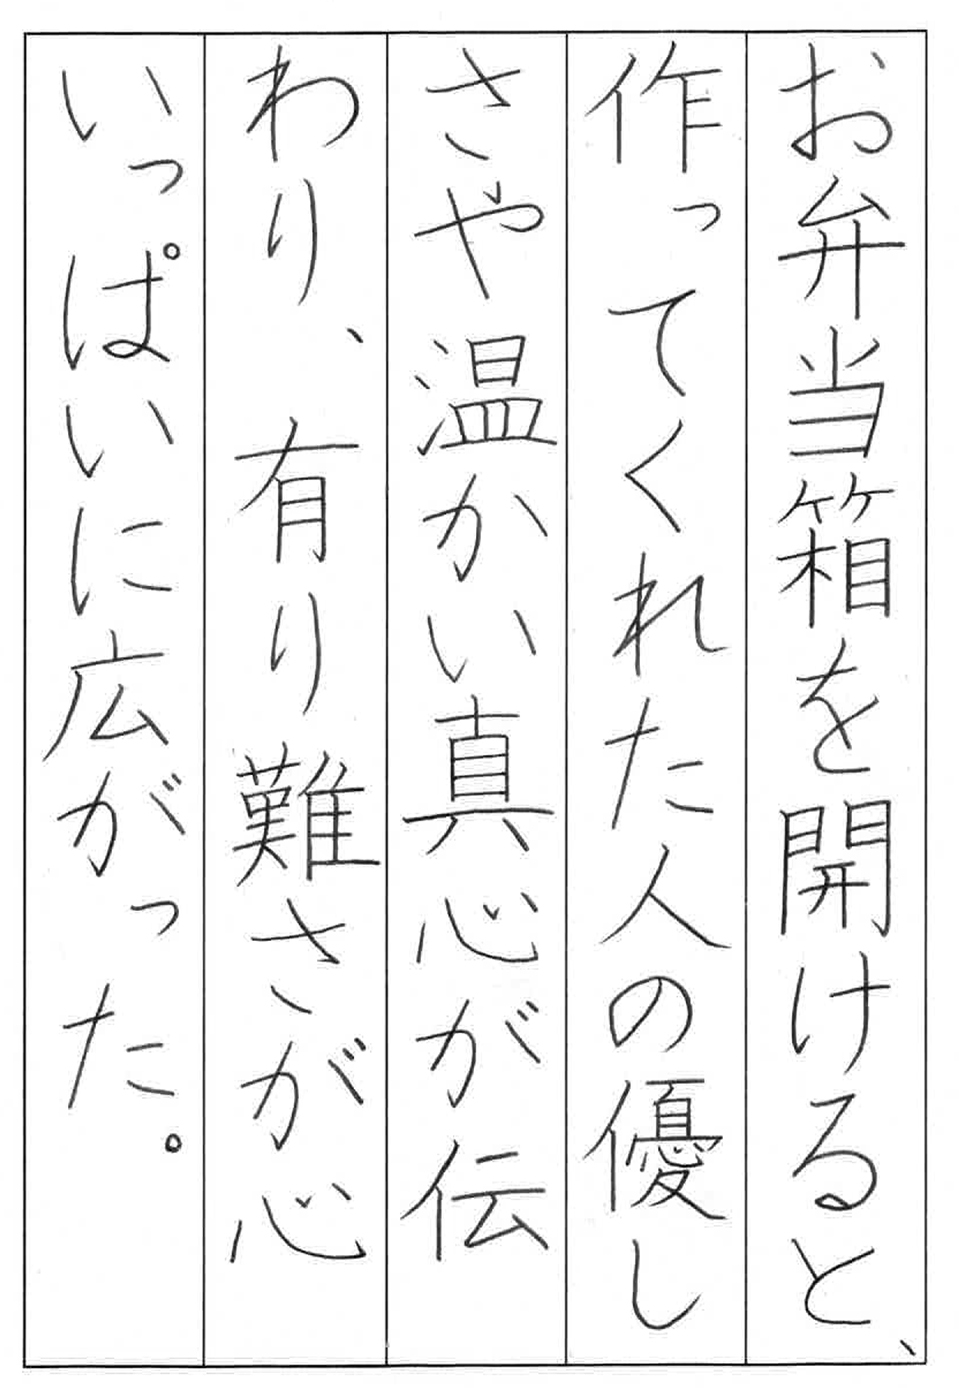 お弁当箱を開けると、
作ってくれた人の優し
さや温かい真心が伝
わり、有り難さが心
いっぱいに広がった。